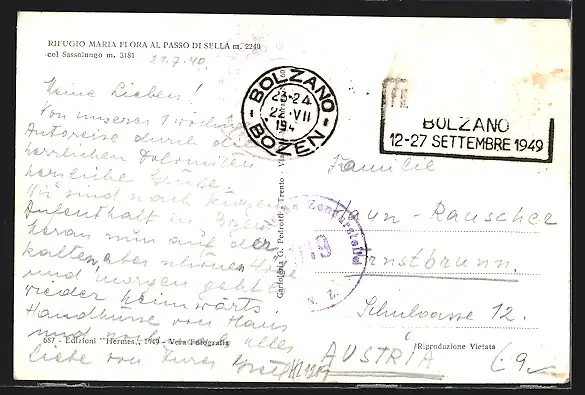 RIFUGIO MARIA FLORA AL PASSO DI SELLA m. 2240
col Sassolungo m. 3181
21.7.49.
Meine Lieben!
Von unserer 1 wöchigen
Autoreise durch die
herrlichen Dolomiten
herzliche Grüße.
Wir sind nach kurzem
Aufenthalt in
nun auf der
kalten, aber schönen
und morgen geht es
wieder heimwärts.
Handküsse von Hans
und alles
liebe von Eurer
687 - Edizioni "Hermes", 1949 - Vera Fotografia
Cartoleria G. Pedrotti - Trento
BOLZANO
23-24
22 VII
194
BOZEN
BOLZANO
12-27 SETTEMBRE 1949
Zensurstelle
Familie
Hayn-Rauscher
Ernstbrunn.
Schulgasse 12.
Riproduzione Vietata
AUSTRIA